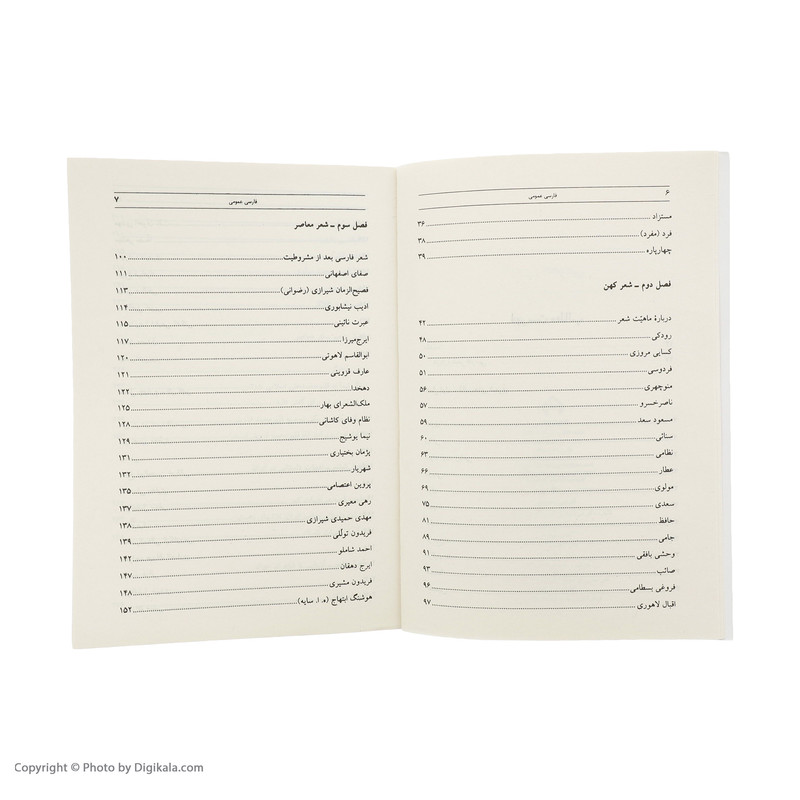 ۶
فارسی عمومی
مستزاد ۳۶
فرد (مفرد) ۳۸
چهارپاره ۳۹
فصل دوم ـ شعر کهن
دربارهٔ ماهیّت شعر ۴۲
رودکی ۴۸
کسایی مروزی ۵۰
فردوسی ۵۱
منوچهری ۵۶
ناصرخسرو ۵۷
مسعود سعد ۵۹
سنائی ۶۰
نظامی ۶۳
عطار ۶۶
مولوی ۶۹
سعدی ۷۵
حافظ ۸۱
جامی ۸۹
وحشی بافقی ۹۱
صائب ۹۳
فروغی بسطامی ۹۶
اقبال لاهوری ۹۷
فارسی عمومی
۷
فصل سوم ـ شعر معاصر
شعر فارسی بعد از مشروطیت ۱۰۰
صفای اصفهانی ۱۱۱
فصیح‌الزمان شیرازی (رضوانی) ۱۱۳
ادیب نیشابوری ۱۱۴
عبرت نائینی ۱۱۵
ایرج‌میرزا ۱۱۷
ابوالقاسم لاهوتی ۱۲۰
عارف قزوینی ۱۲۱
دهخدا ۱۲۲
ملک‌الشعرای بهار ۱۲۵
نظام وفای کاشانی ۱۲۸
نیما یوشیج ۱۲۹
پژمان بختیاری ۱۳۱
شهریار ۱۳۲
پروین اعتصامی ۱۳۵
رهی معیری ۱۳۷
مهدی حمیدی شیرازی ۱۳۸
فریدون توللی ۱۳۹
احمد شاملو ۱۴۲
ایرج دهقان ۱۴۷
فریدون مشیری ۱۴۸
هوشنگ ابتهاج (ه. ا. سایه) ۱۵۲
Copyright © Photo by Digikala.com